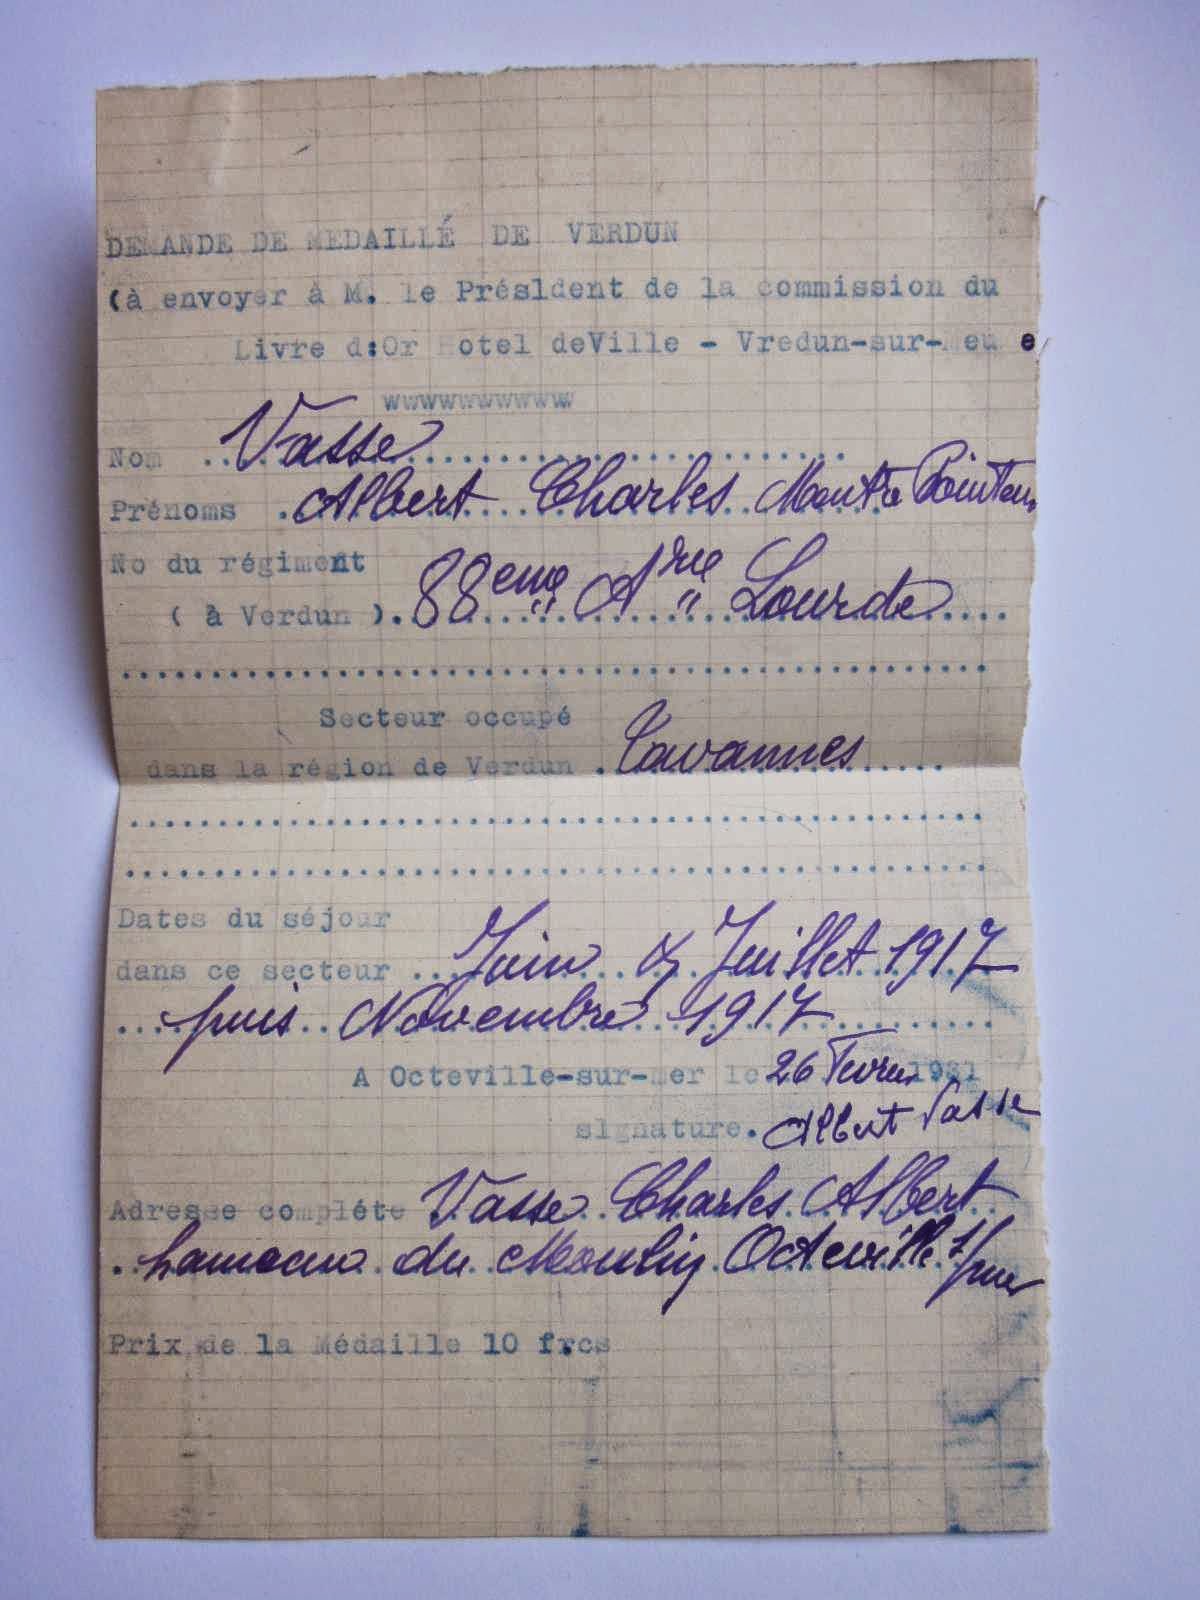 DEMANDE DE MEDAILLÉ DE VERDUN
(à envoyer à M. le Présldent de la commission du
Livre d:Or Hotel deVille - Vredun-sur-Meuse
wwwwwwwwwww
Nom Vasse
Prénoms Albert Charles Montre Pointeur
No du régiment
( à Verdun ). 88eme Arie Lourde
Secteur occupé
dans la région de Verdun . Tavannes
Dates du séjour
dans ce secteur Juin & Juillet 1917
puis Novembre 1917
A Octeville-sur-mer le 26 Fevrier 1931
signature. Albert Vasse
Adresse compléte Vasse Charles Albert
hameau du Moulin Octeville s/mer
Prix de la Médaille 10 frcs